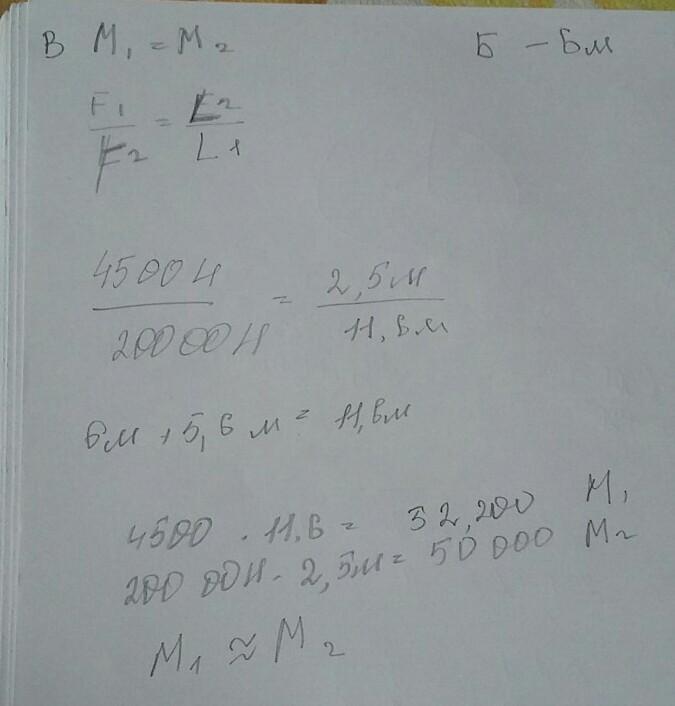 В M₁ = M₂
Б – 6м
F₁/F₂ = L₂/L₁
4500Н/20000Н = 2,5м/11,6м
6м + 5,6м = 11,6м
4500 · 11,6 = 52,200 M₁
20000Н · 2,5м = 50000 M₂
M₁ ≈ M₂